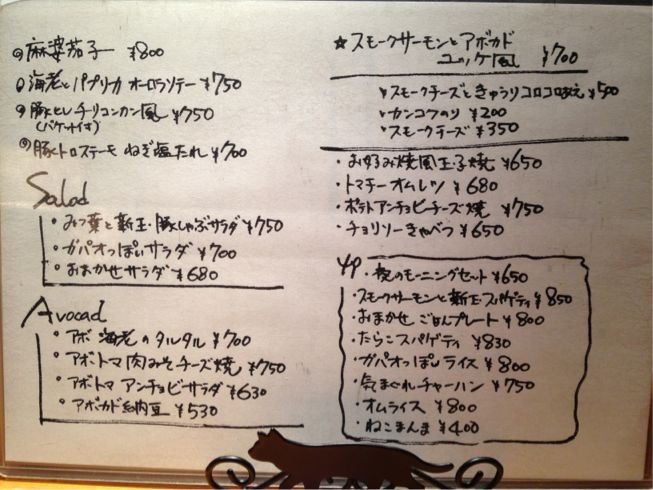 麻婆茄子 ¥800
海老とパプリカ オーロラソテー ¥750
豚ヒレ チリコンカン風 ¥750
(バケット付)
豚トロステーキ ねぎ塩たれ ¥700
Salad
・みつ葉と新玉・豚しゃぶサラダ ¥750
・ガパオっぽいサラダ ¥700
・おまかせサラダ ¥680
Avocad
・アボ 海老のタルタル ¥700
・アボトマ 肉みそチーズ焼 ¥750
・アボトマ アンチョビサラダ ¥630
・アボカド納豆 ¥530
★ スモークサーモンとアボカド
ユッケ風 ¥700
スモークチーズときゅうりコロコロあえ ¥500
カンコフのり ¥200
スモークチーズ ¥350
・お好み焼風玉子焼 ¥650
・トマチーオムレツ ¥680
・ポテトアンチョビチーズ焼 ¥750
・チョリソーきゃべつ ¥650
・夜のモーニングセット ¥650
・スモークサーモンと新玉スパゲティ ¥850
・おまかせ ごはんプレート ¥800
・たらこスパゲティ ¥830
・ガパオっぽいライス ¥800
・気まぐれチャーハン ¥750
・オムライス ¥800
・ねこまんま ¥400